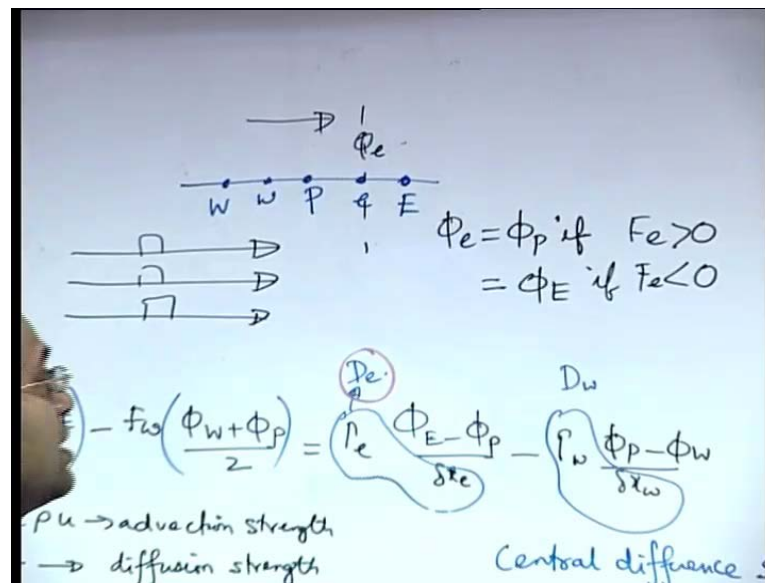 Φe
W w P e E
Φe = ΦP if Fe > 0
= ΦE if Fe < 0
De Dw
) − Fw (ΦW + ΦP / 2) = Γe ΦE − ΦP / δxe − Γw ΦP − ΦW / δxw
ρu → advection strength
→ diffusion strength
Central difference